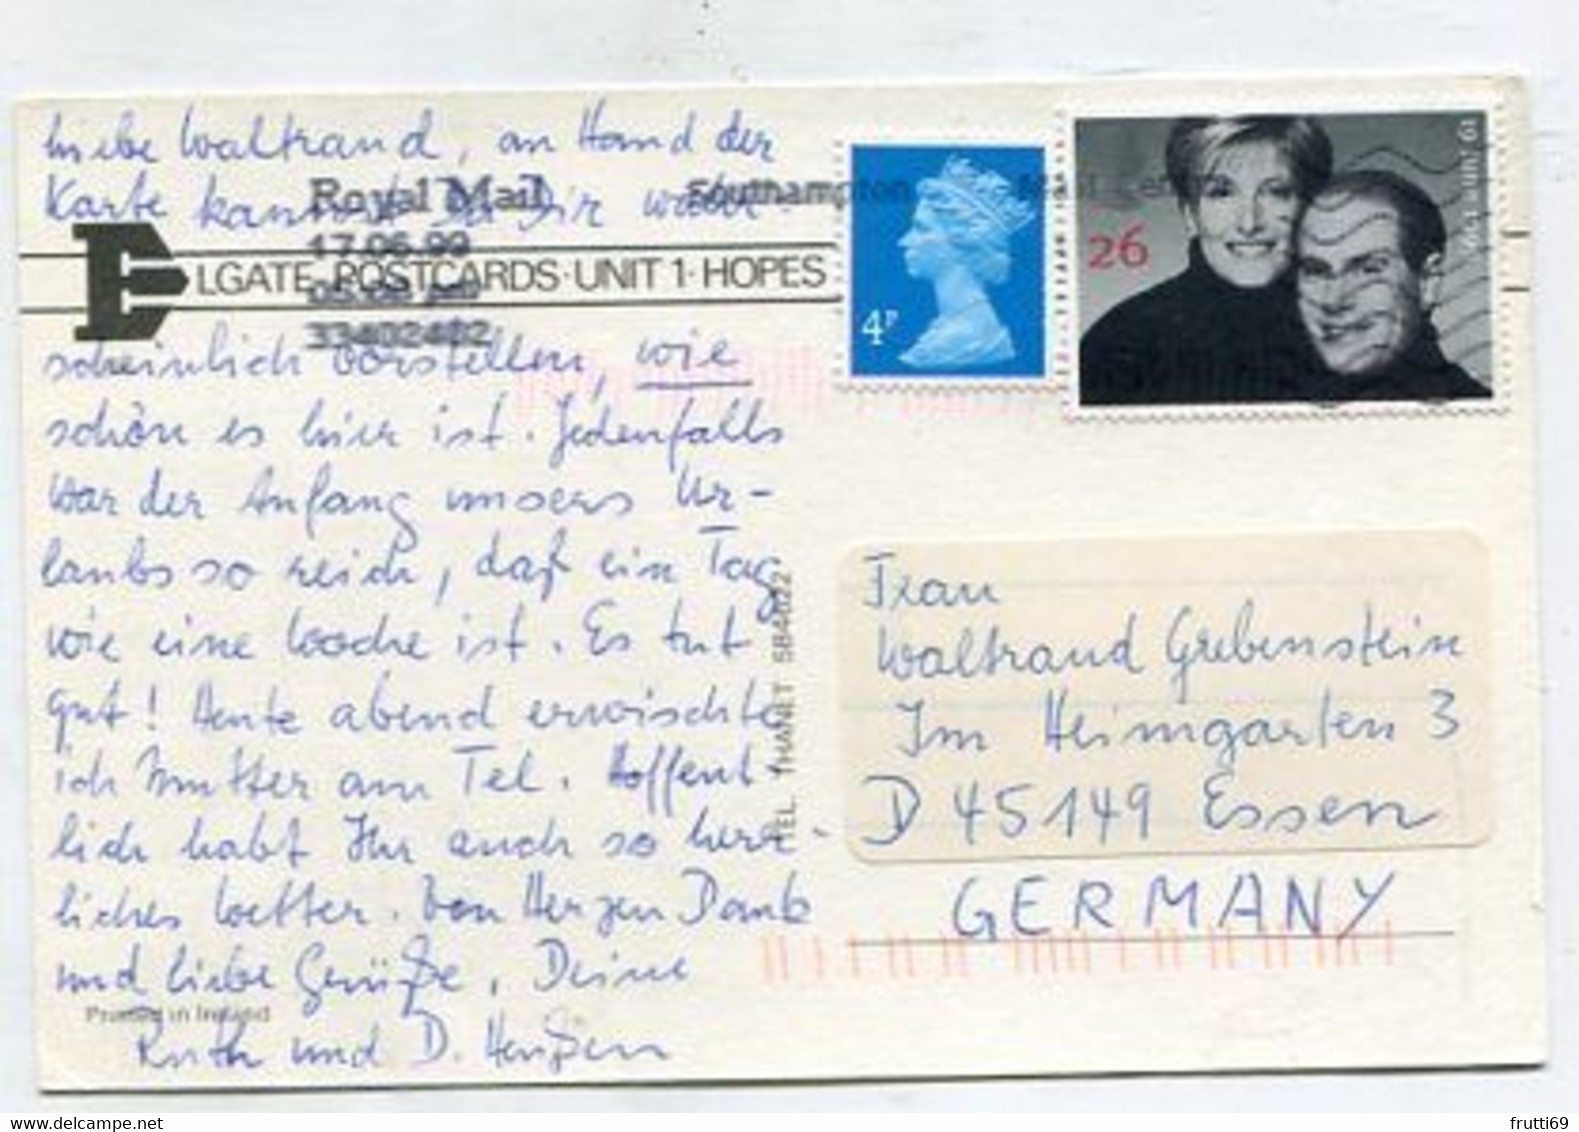 Liebe Waltraud, an Hand der
Karte kannst Du Dir wahr-
scheinlich vorstellen, wie
schön es hier ist. Jedenfalls
war der Anfang unsers Ur-
laubs so reich, daß ein Tag
wie eine Woche ist. Es tut
gut! Heute abend erwischte
ich Mutter am Tel. Hoffent-
lich habt Ihr auch so herr-
liches Wetter. Von Herzen Dank
und liebe Grüße, Deine
Ruth und D.
Royal Mail
Southampton
17.06.99
33402402
ELGATE POSTCARDS·UNIT 1·HOPES
TEL. THANET 584622
Printed in Ireland
4P
26
19 June 1999
Frau
Waltraud Grebenstein
Im Heimgarten 3
D 45149 Essen
GERMANY
delcampe.net
frutti69